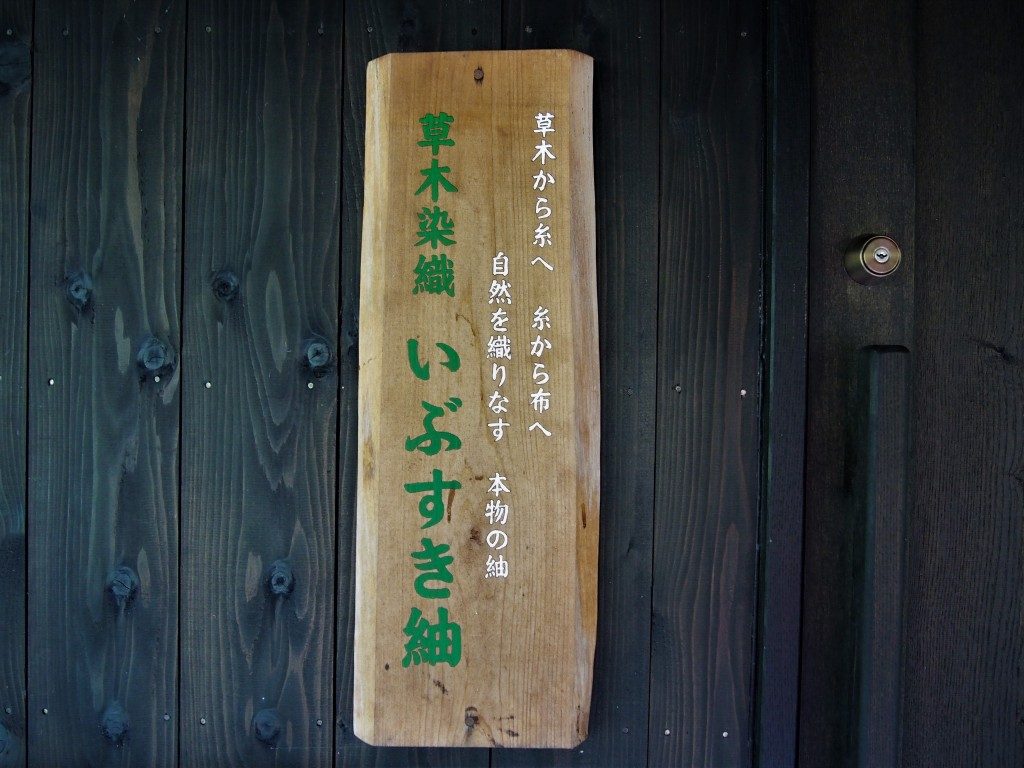 草木から糸へ　糸から布へ
自然を織りなす　本物の紬
草木染織 いぶすき紬